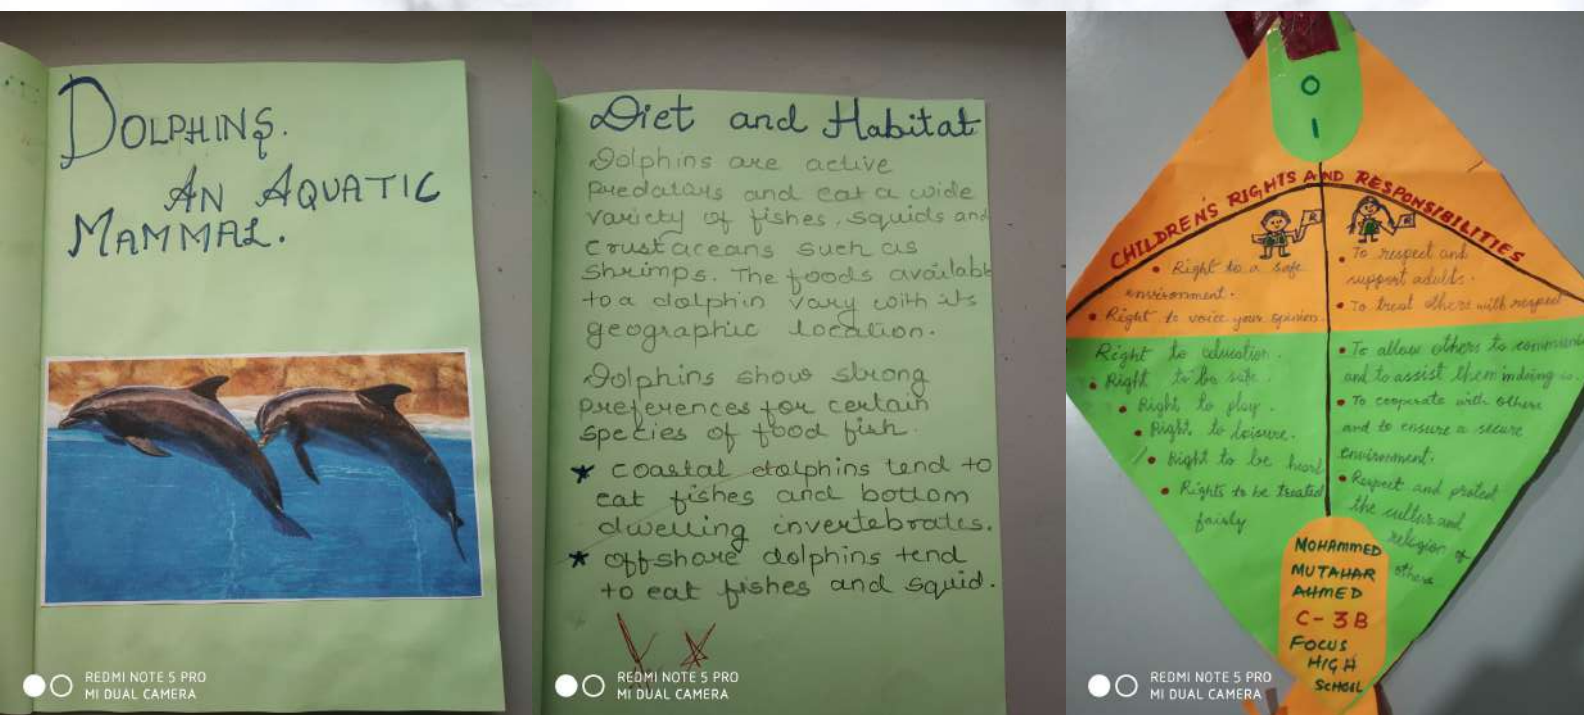 DOLPHINS.
AN AQUATIC
MAMMAL.
REDMI NOTE 5 PRO
MI DUAL CAMERA
Diet and Habitat
Dolphins are active
predators and eat a wide
variety of fishes, squids and
crustaceans such as
shrimps. The foods availabl
to a dolphin vary with its
geographic location.
Dolphins show strong
preferences for certain
species of food fish.
★ coastal dolphins tend to
eat fishes and bottom
dwelling invertebrates.
★ offshore dolphins tend
to eat fishes and squid.
REDMI NOTE 5 PRO
MI DUAL CAMERA
0
1
CHILDREN'S RIGHTS AND RESPONSIBILITIES
R
R
• Right to a safe
environment.
• Right to voice your opinion
Right to education.
• Right to be safe.
• Right to play.
• Right to leisure.
• Right to be heard
• Rights to be treated
fairly
• To respect and
support adults.
• To treat others with respect
• To allow others to communi
and to assist them in doing so.
• To cooperate with others
and to ensure a secure
environment.
• Respect and protect
the cultur and
religion of
others
MOHAMMED
MUTAHAR
AHMED
C-3B
FOCUS
HIGH
SCHOOL
REDMI NOTE 5 PRO
MI DUAL CAMERA